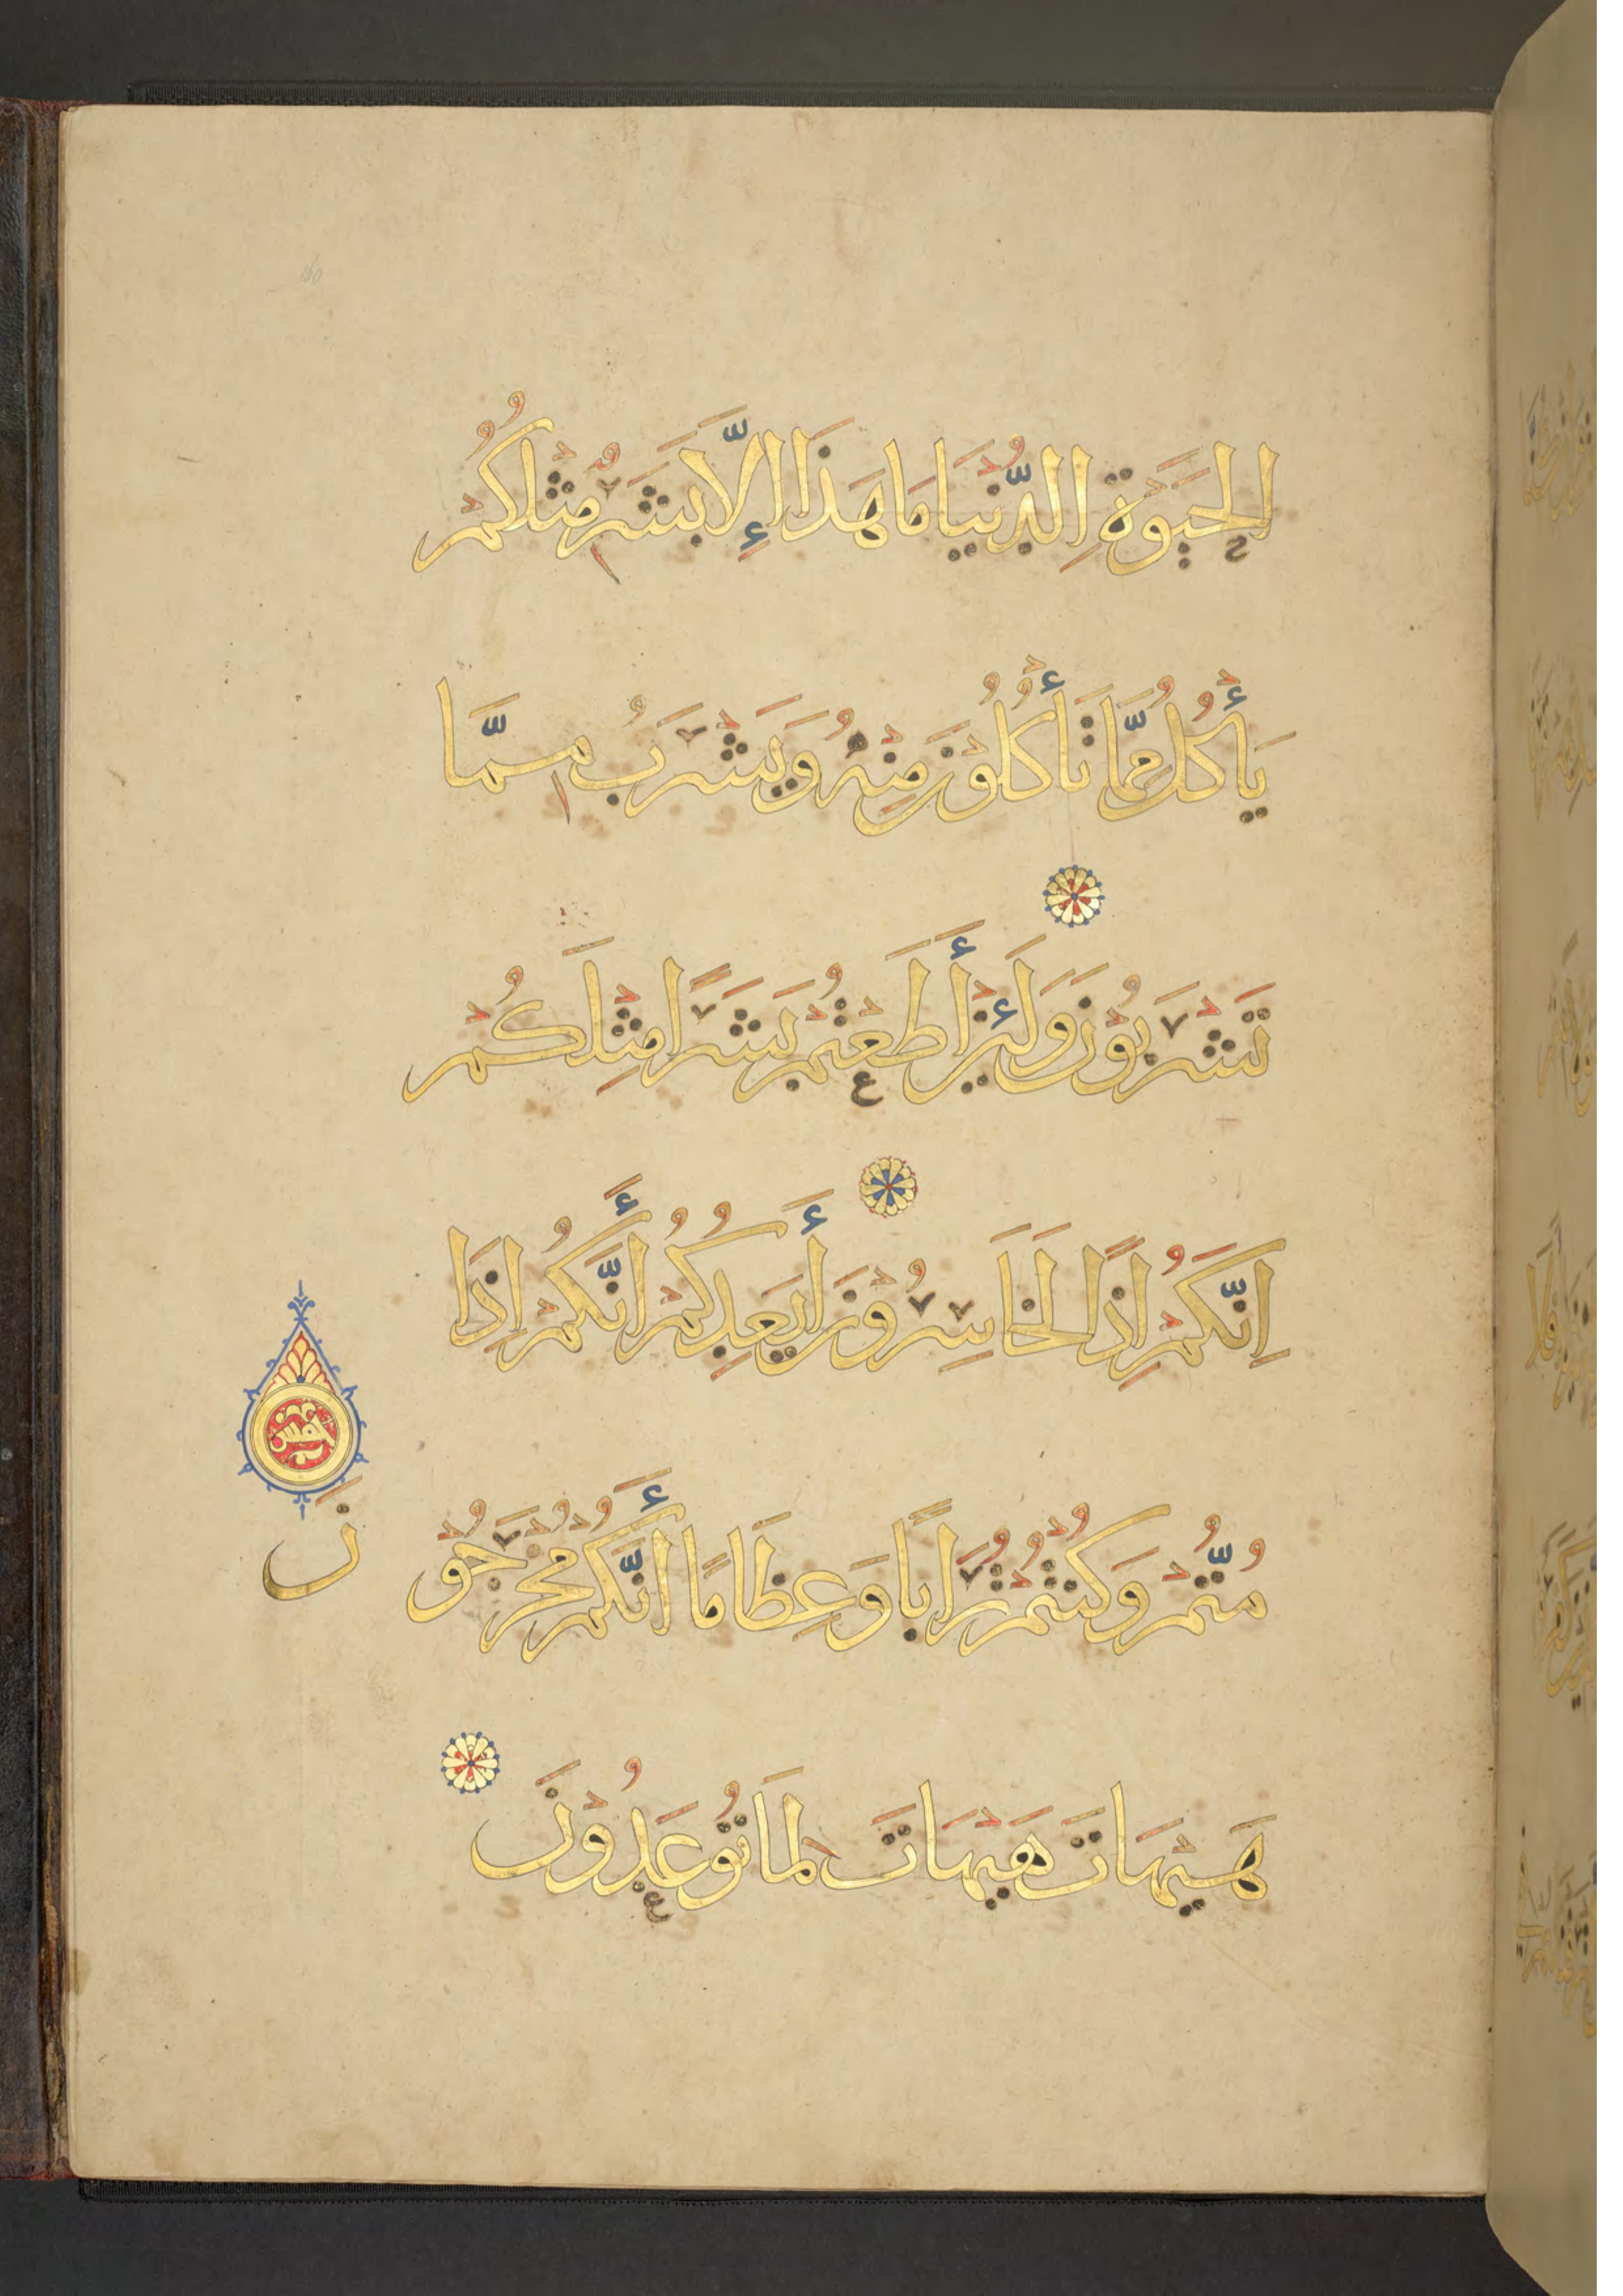 الحَيَوةِ الدُّنْيَا مَا هَذَا إِلَّا بَشَرٌ مِثْلُكُمْ
يَأْكُلُ مِمَّا تَأْكُلُوْنَ مِنْهُ وَيَشْرَبُ مِمَّا
تَشْرَبُوْنَ وَلَئِنْ أَطَعْتُمْ بَشَرًا مِثْلَكُمْ
اِنَّكُمْ اِذًا لَخَاسِرُوْنَ أَيَعِدُكُمْ أَنَّكُمْ اِذَا
خمس
مُتُّمْ وَكُنْتُمْ تُرَابًا وَعِظَامًا أَنَّكُمْ مُخْرَجُوْ
نَ
هَيْهَاتَ هَيْهَاتَ لِمَا تُوْعَدُوْنَ